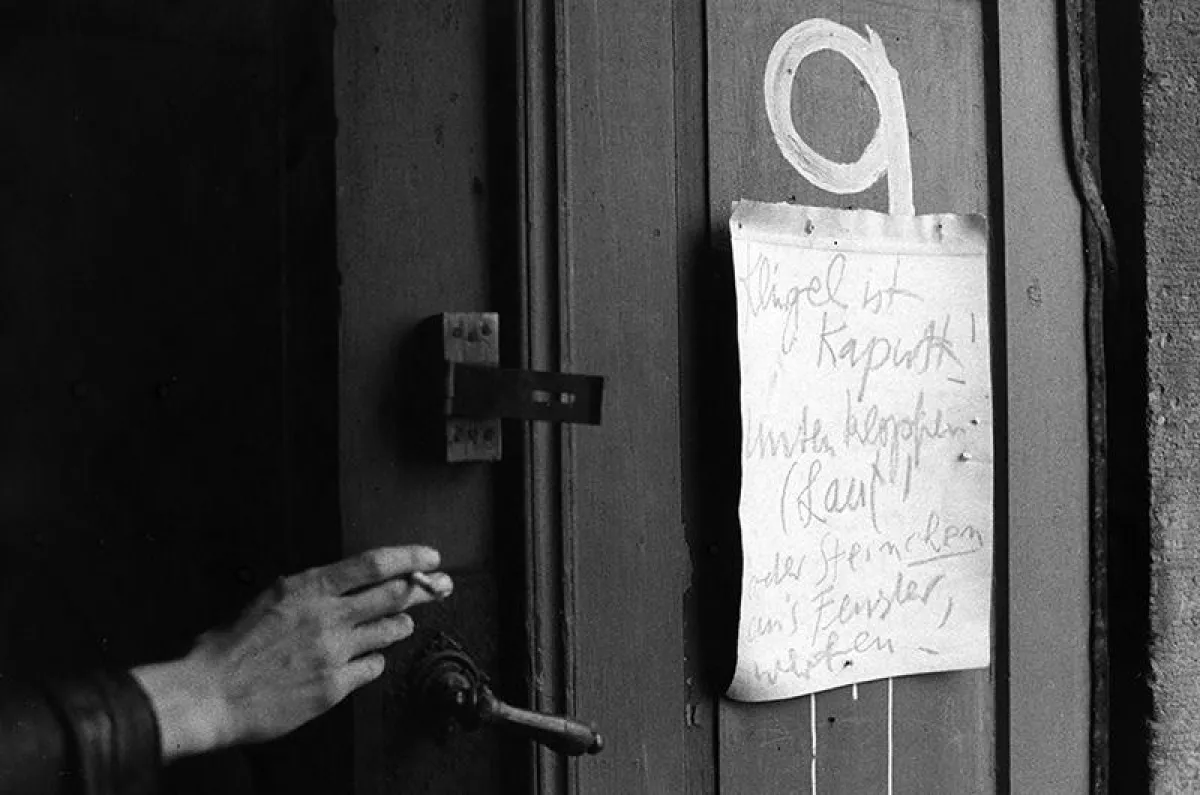 9
Klingel ist
Kaputt!
unten kloppfen
(Laut)!
oder Steinchen
an's Fenster,
werfen -